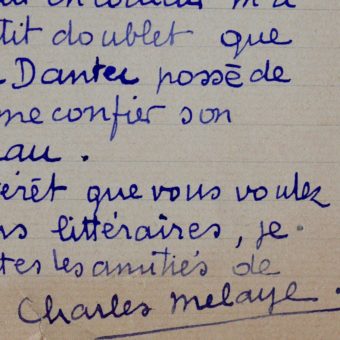 m'a
tit doublet que
Dantec possède
me confier son
au.
érêt que vous voulez
s littéraires, je
tes les amitiés de
Charles Melaye.